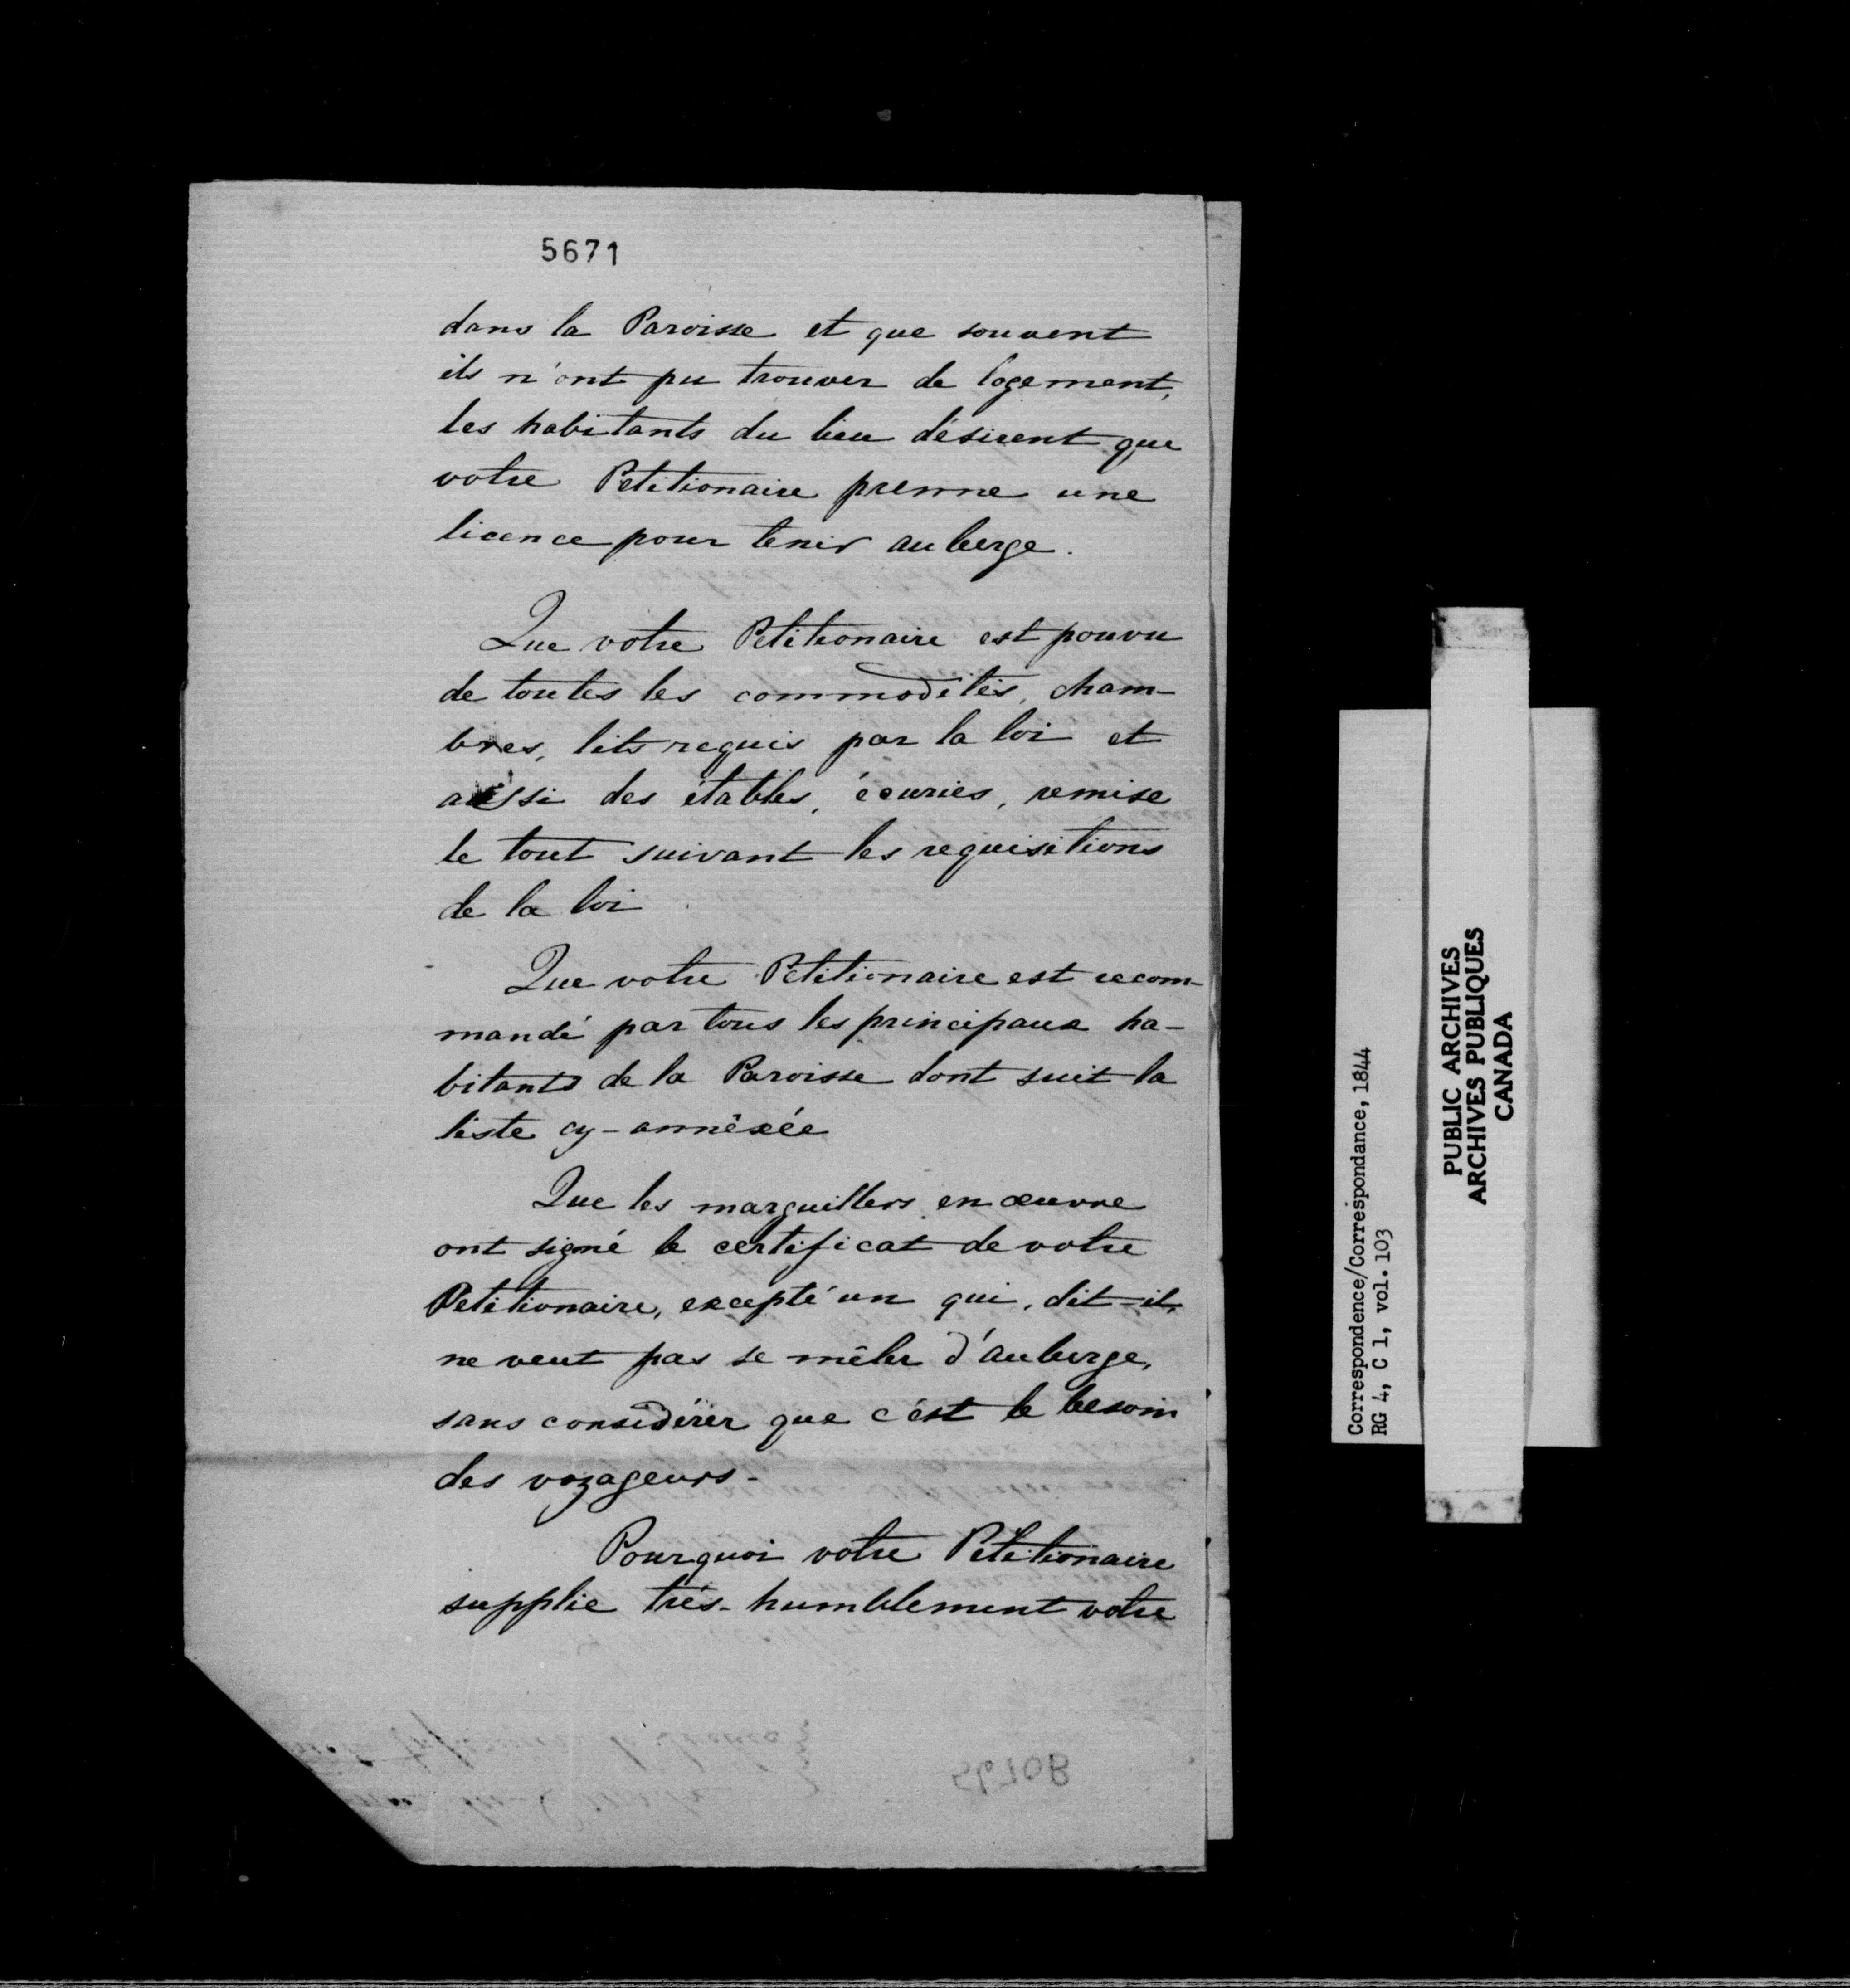 5671
dans la Paroisse et que souvent
ils n'ont pu trouver de logement,
les habitants du lieu désirent que
votre Petitionaire prenne une
licence pour tenir auberge.
Que votre Petitionaire est pouvu
de toutes les commodités, cham-
bres, lits requis par la loi et
aussi des étables, écuries, remise
le tout suivant les requisitions
de la loi
Que votre Petitionaire est recom-
mandé par tous les principaux ha-
bitants de la Paroisse dont suit la
liste cy-annêxée
Que les marguillers en œuvre
ont signé le certificat de votre
Petitionaire, excepté un qui, dit-il,
ne veut pas se mêler d'auberge,
sans considérer que c'est le besoin
des voyageurs-
Pourquoi votre Petitionaire
supplie très-humblement votre
5670B
Correspondence/Correspondance, 1844
RG 4, C 1, vol. 103
PUBLIC ARCHIVES
ARCHIVES PUBLIQUES
CANADA